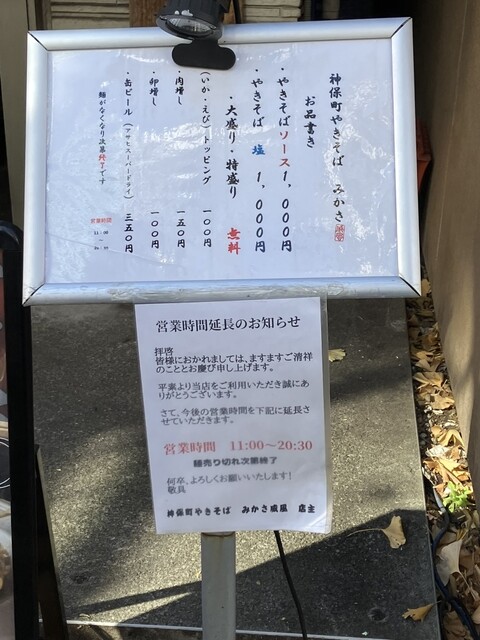 神保町やきそば みかさ
お品書き
・やきそば ソース 1,000円
・やきそば 塩 1,000円
・大盛り・特盛り 無料
(いか・えび)トッピング 一〇〇円
・肉増し 一五〇円
・卵増し 一〇〇円
・缶ビール (アサヒスーパードライ) 三五〇円
麺がなくなり次第終了です
営業時間
11:00
~
営業時間延長のお知らせ
拝啓
皆様におかれましては、ますますご清祥
のこととお慶び申し上げます。
平素より当店をご利用いただき誠にあ
りがとうございます。
さて、今後の営業時間を下記に延長さ
せていただきます。
営業時間 11:00~20:30
麺売り切れ次第終了
何卒、よろしくお願いいたします!
敬具
神保町やきそば みかさ 店主